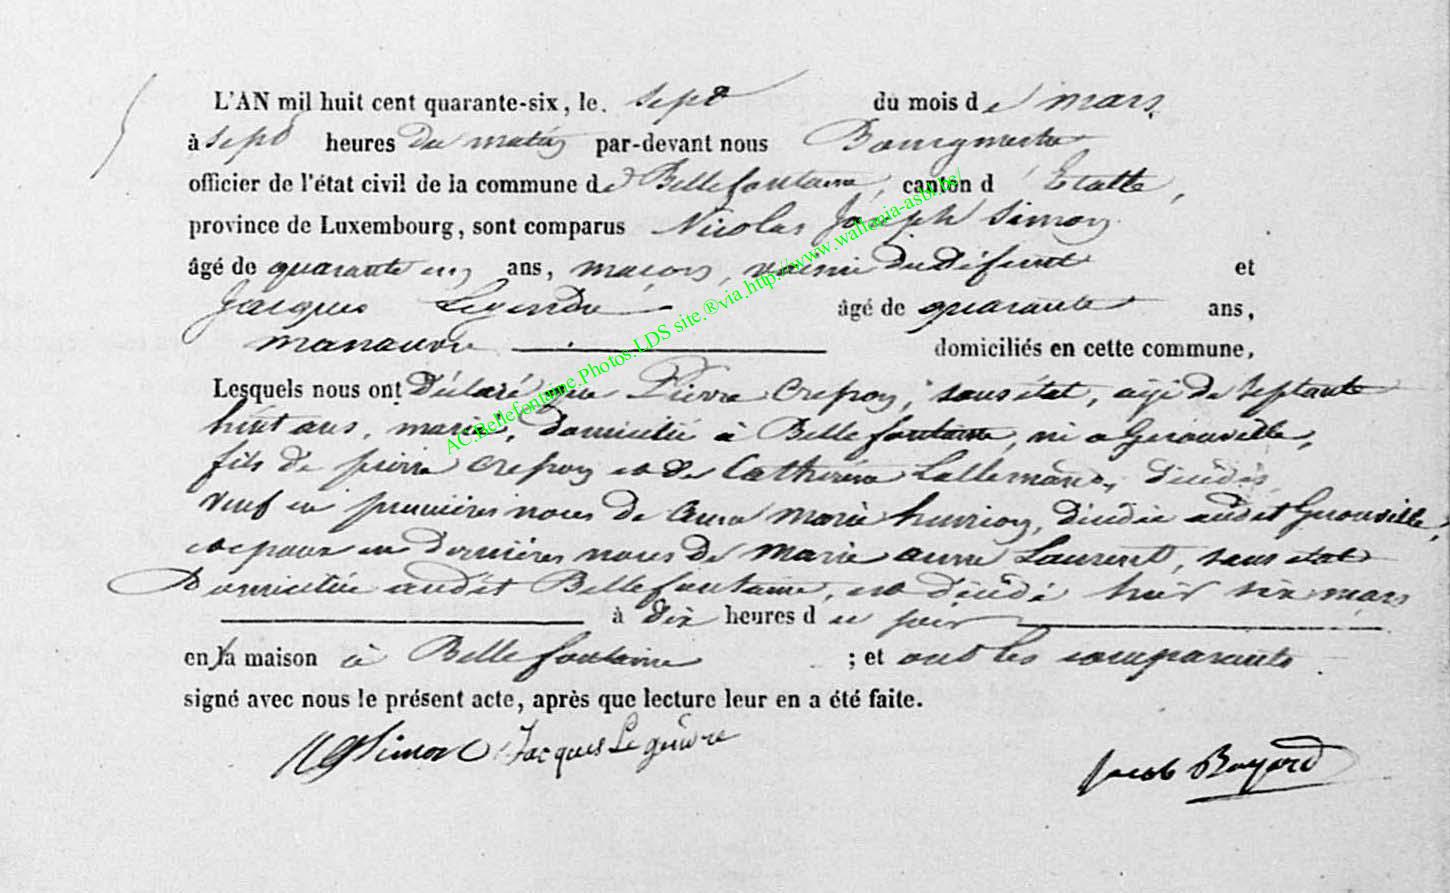 L'AN mil huit cent quarante-six, le sept du mois de mars
à sept heures du matin par-devant nous Bourgmestre
officier de l'état civil de la commune de Bellefontaine, canton d'Etalle,
province de Luxembourg, sont comparus Nicolas Joseph Simon
âgé de quarante un ans, maçon, voisin du défunt et
Jacques âgé de quarante ans,
manœuvre domiciliés en cette commune,
Lesquels nous ont Déclaré que Pierre Crepon, sans état, agé de septante
huit ans, marié, Domicilié à Bellefontaine, né a Gerouville,
fils de pierre Crepon et de Catherine Lallemand, décédés,
veuf en premières noces de anne marie henrion, décédée audit Gerouville,
et epoux en dernières noces de marie anne Laurent, sans état
Domiciliée audit Bellefontaine, est décédé hier six mars
à dix heures du soir
en sa maison à Bellefontaine ; et ont les comparants
signé avec nous le présent acte, après que lecture leur en a été faite.
Simon Jacques
Jacob Bayard
AC.Bellefontaine.Photos.LDS site.®via.http://www.wallonia-asbl.be/